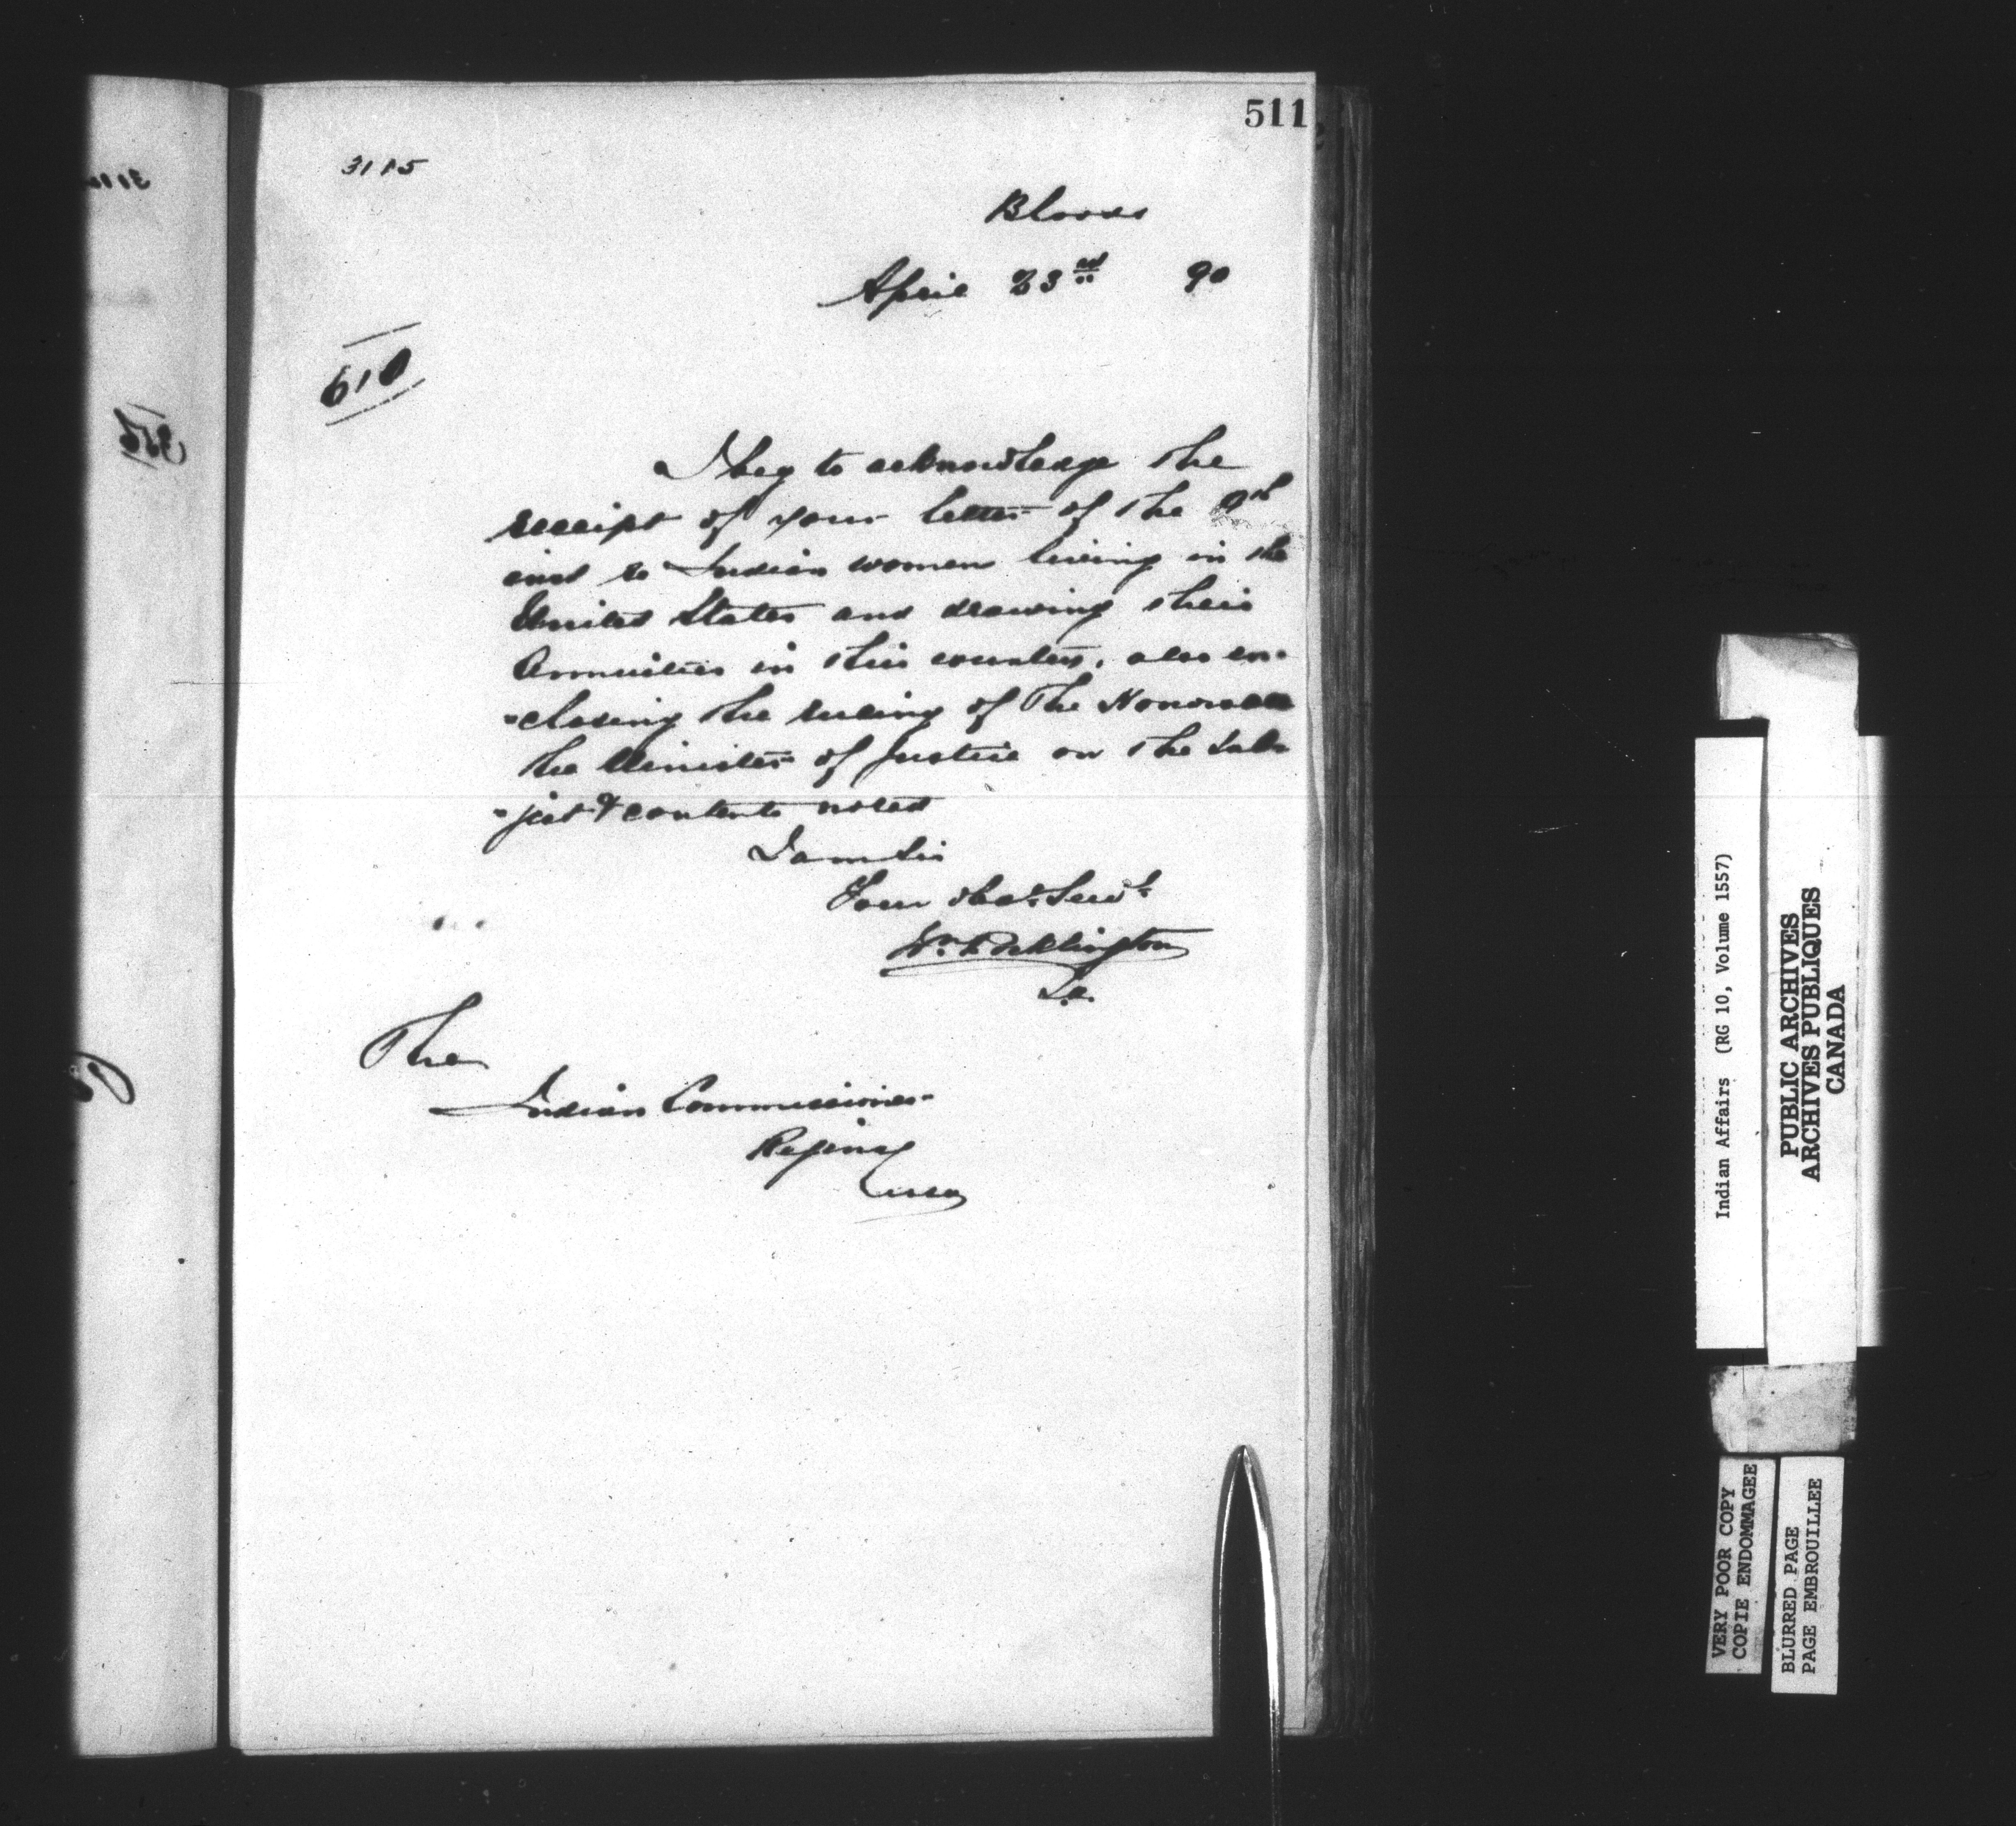 511
3115
Bloods
April 23rd 90
610
I beg to acknowledge the
receipt of your letter of the 9th
inst re Indian women living in the
United States and drawing their
Annuities in this country, also en-
-closing the ruling of The Honorable
the Minister of Justice on the sub
-ject & contents noted
I am Sir
Your Obdt. Servt.
Wm. Pocklington
I.a.
The
Indian Commissioner
Regina
Assa
Indian Affairs (RG 10, Volume 1557)
PUBLIC ARCHIVES
ARCHIVES PUBLIQUES
CANADA
VERY POOR COPY
COPIE ENDOMMAGEE
BLURRED PAGE
PAGE EMBROUILLEE